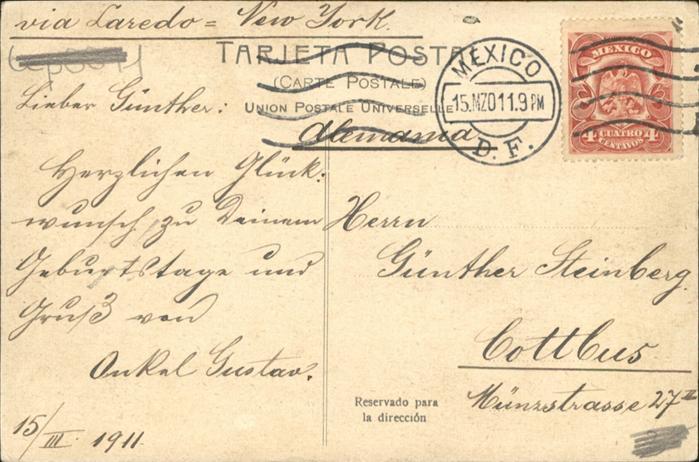 via Laredo = New York.
TARJETA POSTAL
(CARTE POSTALE)
UNION POSTALE UNIVERSELLE
Alemania
MEXICO
15.MZO11.9 PM
D. F.
MEXICO
4 CUATRO 4
CENTAVOS
Lieber Günther:
Herzlichen Glück-
wunsch, zu Deinem
Geburtstage und
Gruß von
Onkel Gustav.
15/III. 1911.
Herrn
Günther Steinberg.
Cottbus
Münzstrasse 27 II
Reservado para
la dirección